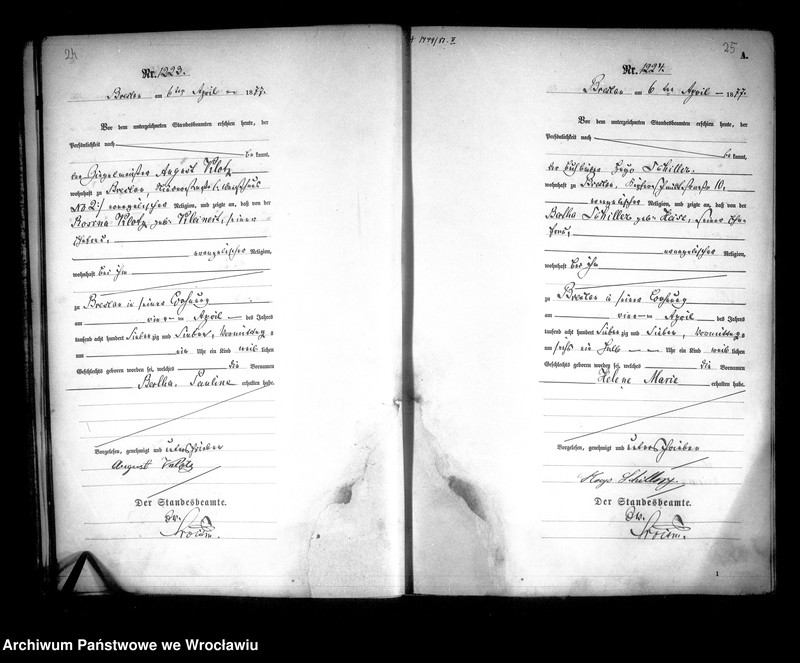 24
Nr. 1223.
Breslau am 6ten April 1877.
Vor dem unterzeichneten Standesbeamten erschien heute, der
Persönlichkeit nach
be kannt,
der August Klotz
wohnhaft zu Breslau,
No 2, evangelischer Religion, und zeigte an, daß von der
Rosina Klotz geb. Kleinert, seiner
Ehefrau,
evangelischer Religion,
wohnhaft bei ihm
zu Breslau in seiner Wohnung
am vierten April des Jahres
tausend acht hundert siebenzig und sieben, Vormittags
um ein Uhr ein Kind weiblichen
Geschlechts geboren worden sei, welches die Vornamen
Bertha Pauline erhalten habe.
Vorgelesen, genehmigt und unterschrieben
August Klotz
Der Standesbeamte.
25
A.
Nr. 1224.
Breslau am 6ten April 1877.
Vor dem unterzeichneten Standesbeamten erschien heute, der
Persönlichkeit nach
be kannt,
der Hugo Schiller,
wohnhaft zu Breslau, 10,
evangelischer Religion, und zeigte an, daß von der
Bertha Schiller geb. seiner Ehe-
frau,
evangelischer Religion,
wohnhaft bei ihm
zu Breslau in seiner Wohnung
am vierten April des Jahres
tausend acht hundert siebenzig und sieben, Vormittags
um sechs ein halb Uhr ein Kind weiblichen
Geschlechts geboren worden sei, welches die Vornamen
Helene Marie erhalten habe.
Vorgelesen, genehmigt und unterschrieben
Hugo Schiller
Der Standesbeamte.
1
Archiwum Państwowe we Wrocławiu